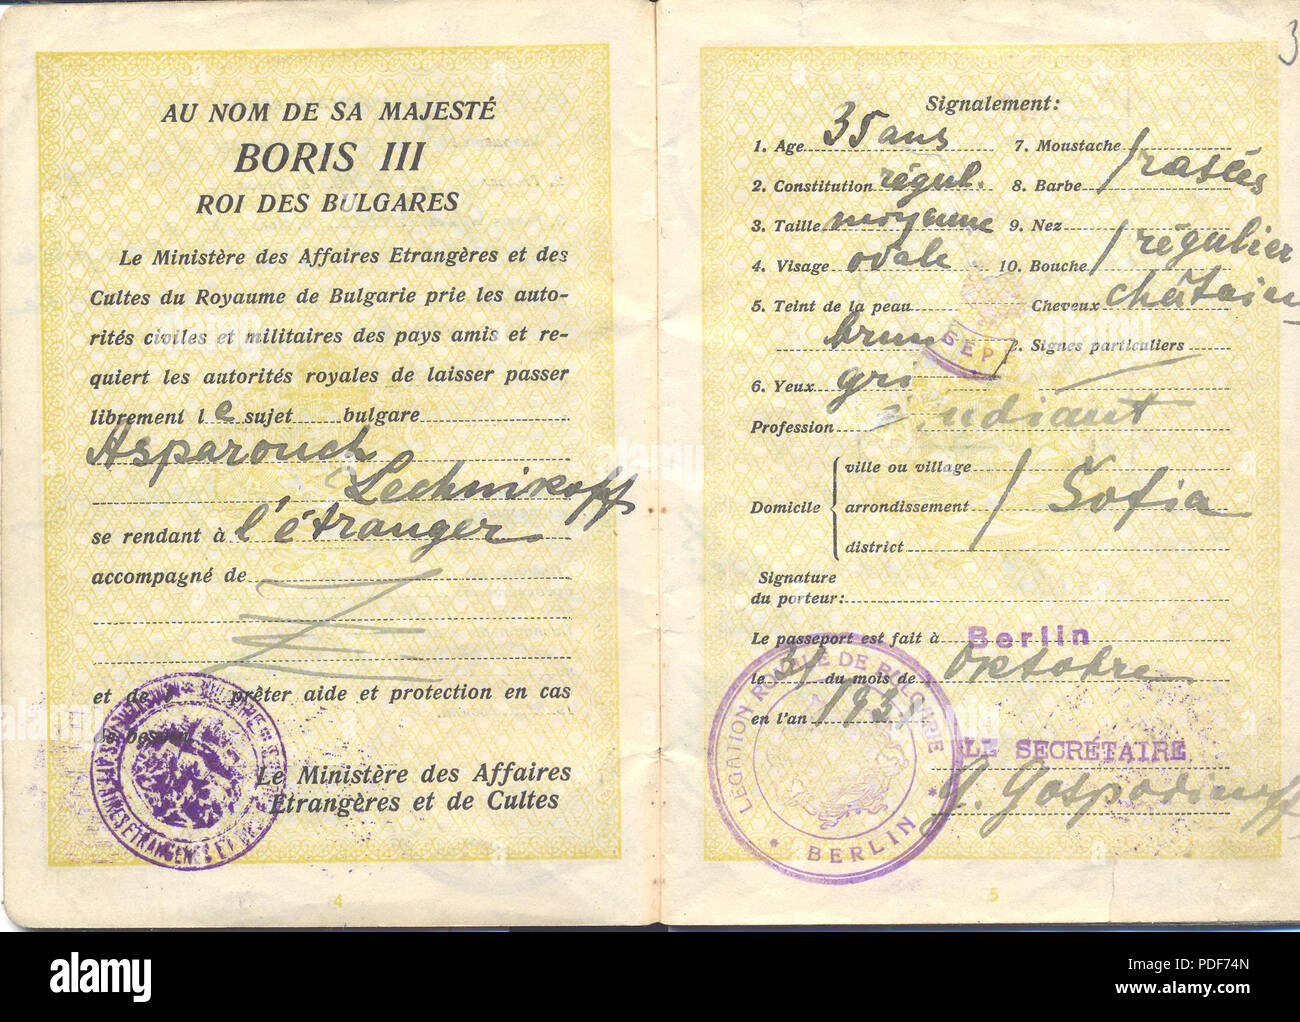 AU NOM DE SA MAJESTÉ
BORIS III
ROI DES BULGARES
Le Ministère des Affaires Etrangères et des
Cultes du Royaume de Bulgarie prie les auto-
rités civiles et militaires des pays amis et re-
quiert les autorités royales de laisser passer
librement le sujet bulgare
Asparouch
Lechnikoff
se rendant à l'étranger
accompagné de
et de prêter aide et protection en cas
besoin
Le Ministère des Affaires
Etrangères et de Cultes
4
3
Signalement:
1. Age 35 ans
2. Constitution régul.
3. Taille moyenne
4. Visage ovale
5. Teint de la peau
brun
6. Yeux gri
7. Moustache
8. Barbe
rasées
9. Nez
10. Bouche
régulier
Cheveux châtain
2. Signes particuliers
БЕР
Profession
Domicile
ville ou village
arrondissement
district
Sofia
Signature
du porteur:
Le passeport est fait à Berlin
le 31 du mois de Oktobre
en l'an
LE SECRÉTAIRE
LEGATION ROYALE DE BULGARIE
* BERLIN *
5
alamy
Image ID: PDF74N
www.alamy.com